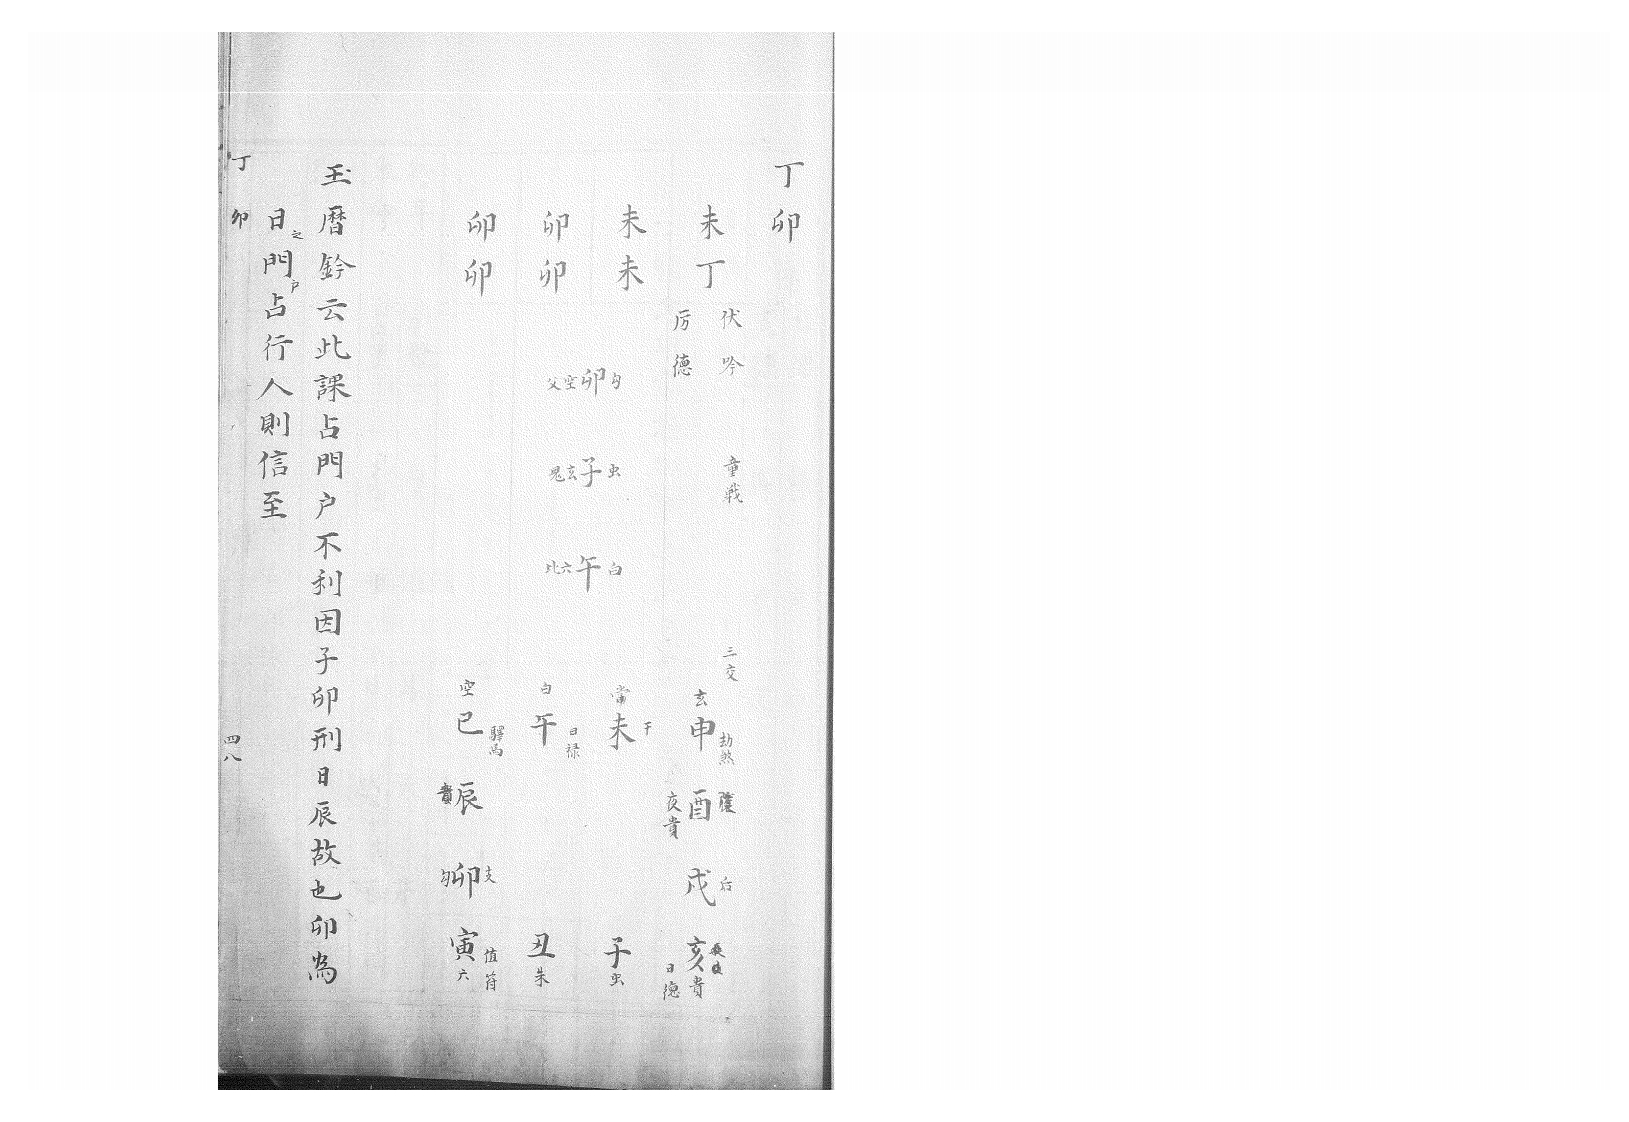 丁卯
未丁
未未
卯卯
卯卯
伏吟
厉德
童戟
三交
勾卯空父
虫子玄鬼
白午六比
玄申劫煞
酉陰夜貴
戌后
亥貴日德
當未干
子虫
白午日禄
丑朱
空巳驛馬
辰貴
勾卯支
寅六值符
玉曆鈐云此課占門户不利因子卯刑日辰故也卯為
日之門户占行人則信至
丁卯
四八